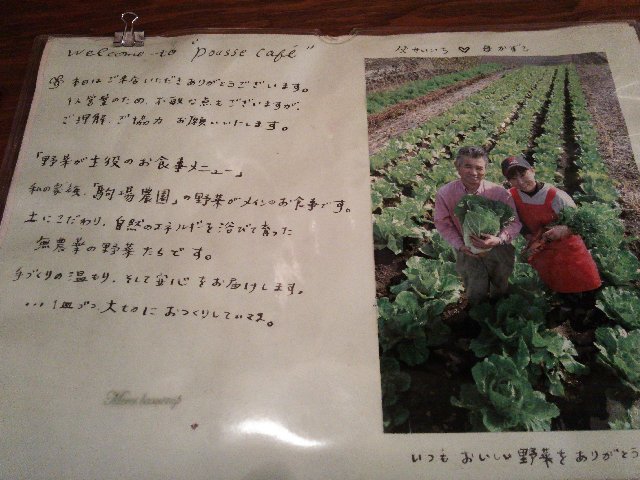 welcome to "pousse café"
本日はご来店いただきありがとうございます。
1人営業のため、不敏な点もございますが、
ご理解、ご協力 お願いいたします。
「野菜が主役のお食事メニュー」
私の家族、「駒場農園」の野菜がメインのお食事です。
土にこだわり、自然のエネルギーを浴びて育った
無農薬の野菜たちです。
手づくりの温もり、そして安心をお届けします。
...1皿づつ大切におつくりしています。
父せいいち ♡ 母かずこ
いつも おいしい野菜を ありがとう